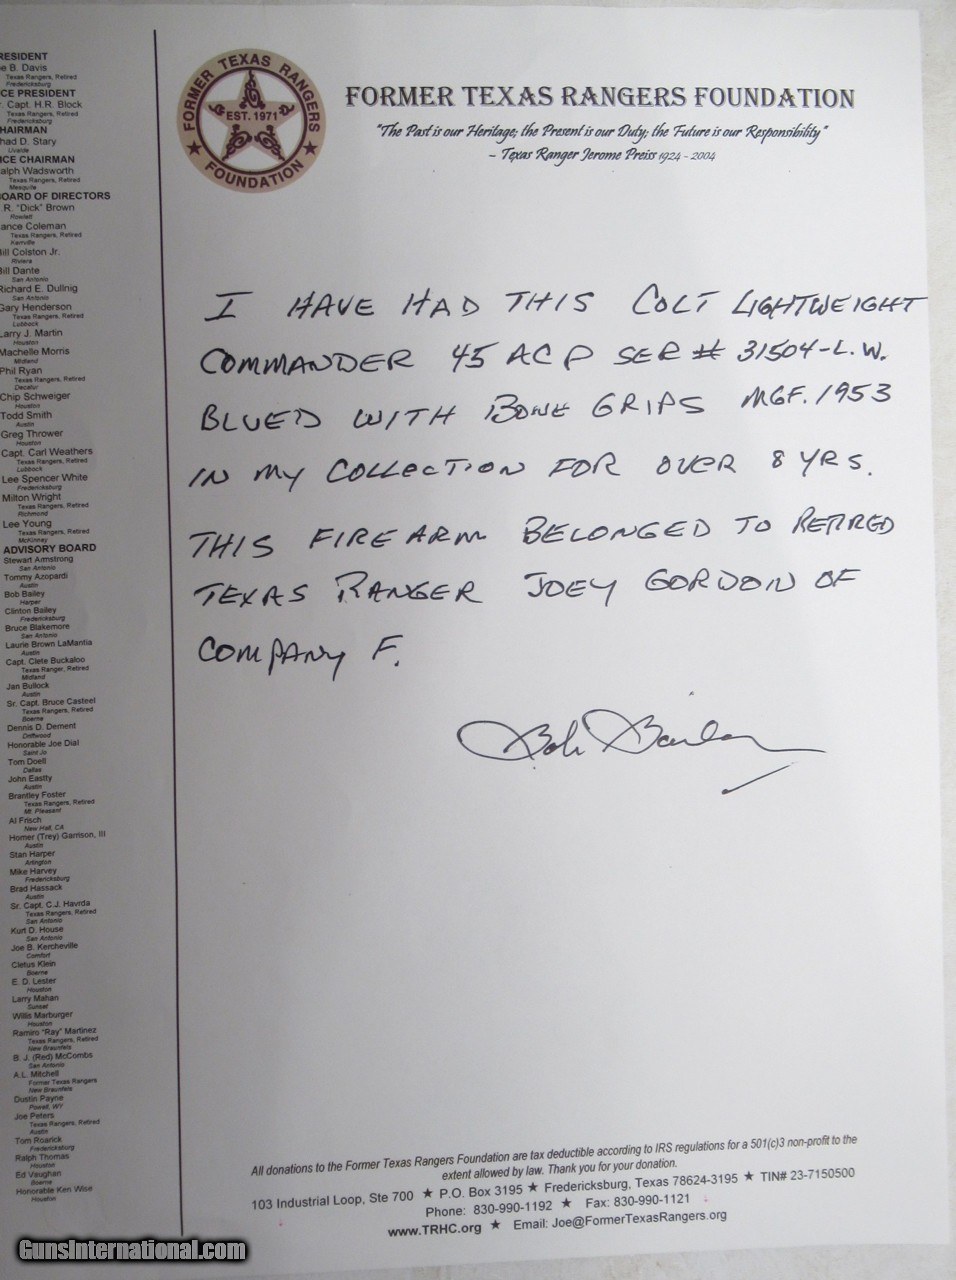 RESIDENT
e B. Davis
Texas Rangers, Retired
Fredericksburg
CE PRESIDENT
. Capt. H.R. Block
Texas Rangers, Retired
Fredericksburg
HAIRMAN
had D. Stary
Uvalde
ICE CHAIRMAN
alph Wadsworth
Texas Rangers, Retired
Mesquite
OARD OF DIRECTORS
R. "Dick" Brown
Rowlett
ance Coleman
Texas Rangers, Retired
Kerrville
ill Colston Jr.
Riviera
ill Dante
San Antonio
Richard E. Dullnig
San Antonio
Gary Henderson
Texas Rangers, Retired
Lubbock
Larry J. Martin
Houston
Machelle Morris
Midland
Phil Ryan
Texas Rangers, Retired
Decatur
Chip Schweiger
Houston
Todd Smith
Austin
Greg Thrower
Houston
Capt. Carl Weathers
Texas Rangers, Retired
Lubbock
Lee Spencer White
Fredericksburg
Milton Wright
Texas Rangers, Retired
Richmond
Lee Young
Texas Rangers, Retired
McKinney
ADVISORY BOARD
Stewart Armstrong
San Antonio
Tommy Azopardi
Austin
Bob Bailey
Harper
Clinton Bailey
Fredericksburg
Bruce Blakemore
San Antonio
Laurie Brown LaMantia
Austin
Capt. Clete Buckaloo
Texas Ranger, Retired
Midland
Jan Bullock
Austin
Sr. Capt. Bruce Casteel
Texas Rangers, Retired
Boerne
Dennis D. Dement
Driftwood
Honorable Joe Dial
Saint Jo
Tom Doell
Dallas
John Eastty
Austin
Brantley Foster
Texas Rangers, Retired
Mt. Pleasant
Al Frisch
New Hall, CA
Homer (Trey) Garrison, III
Austin
Stan Harper
Arlington
Mike Harvey
Fredericksburg
Brad Hassack
Austin
Sr. Capt. C.J. Havrda
Texas Rangers, Retired
San Antonio
Kurt D. House
San Antonio
Joe B. Kercheville
Comfort
Cletus Klein
Boerne
E. D. Lester
Houston
Larry Mahan
Sunset
Willis Marburger
Houston
Ramiro "Ray" Martinez
Texas Rangers, Retired
New Braunfels
B. J. (Red) McCombs
San Antonio
A.L. Mitchell
Former Texas Rangers
New Braunfels
Dustin Payne
Powell, WY
Joe Peters
Texas Rangers, Retired
Austin
Tom Roarick
Fredericksburg
Ralph Thomas
Houston
Ed Vaughan
Boerne
Honorable Ken Wise
Houston
FORMER TEXAS RANGERS
EST. 1971
FOUNDATION
FORMER TEXAS RANGERS FOUNDATION
"The Past is our Heritage; the Present is our Duty; the Future is our Responsibility"
~ Texas Ranger Jerome Preiss 1924 - 2004
I HAVE HAD THIS COLT LIGHTWEIGHT
COMMANDER 45 ACP SER # 31504-L.W.
BLUED WITH BONE GRIPS MGF. 1953
IN MY COLLECTION FOR OVER 8 YRS.
THIS FIREARM BELONGED TO
TEXAS RANGER JOEY GORDON OF
COMPANY F.
Bob Bailey
All donations to the Former Texas Rangers Foundation are tax deductible according to IRS regulations for a 501(c)3 non-profit to the
extent allowed by law. Thank you for your donation.
103 Industrial Loop, Ste 700 ★ P.O. Box 3195 ★ Fredericksburg, Texas 78624-3195 ★ TIN# 23-7150500
Phone: 830-990-1192 ★ Fax: 830-990-1121
www.TRHC.org ★ Email: Joe@FormerTexasRangers.org
GunsInternational.com